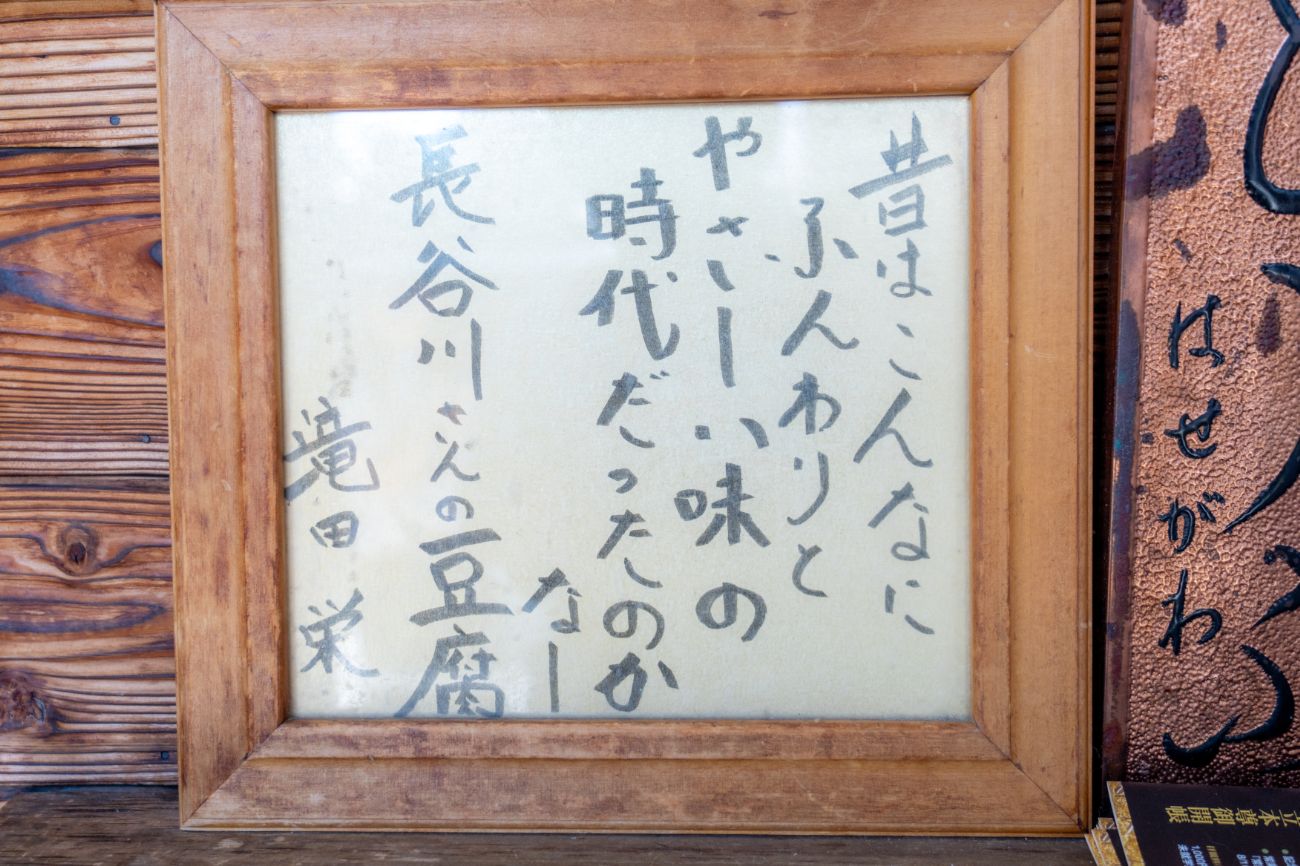 昔はこんなに
ふんわりと
やさしい味の
時代だったのか
なー
長谷川さんの豆腐
滝田栄
はせがわ
立本尊御開帳